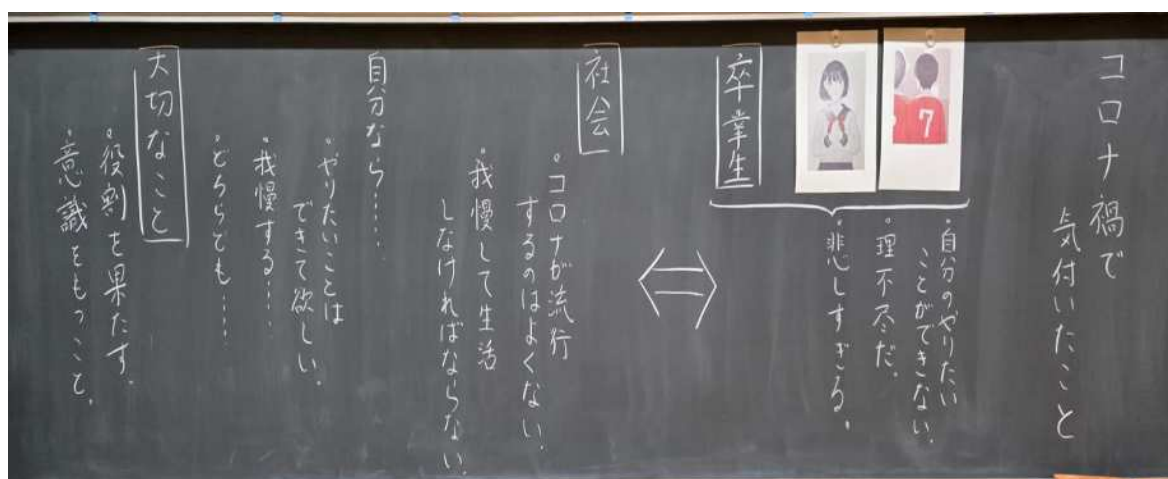 コロナ禍で
気付いたこと
7
卒業生
。自分のやりたい
ことができない。
。理不尽だ。
。悲しすぎる。
社会
。コロナが流行
するのはよくない。
。我慢して生活
しなければならない。
自分なら……
。やりたいことは
できて欲しい。
。我慢する…
。どちらでも……
大切なこと
。役割を果たす。
。意識をもつこと。